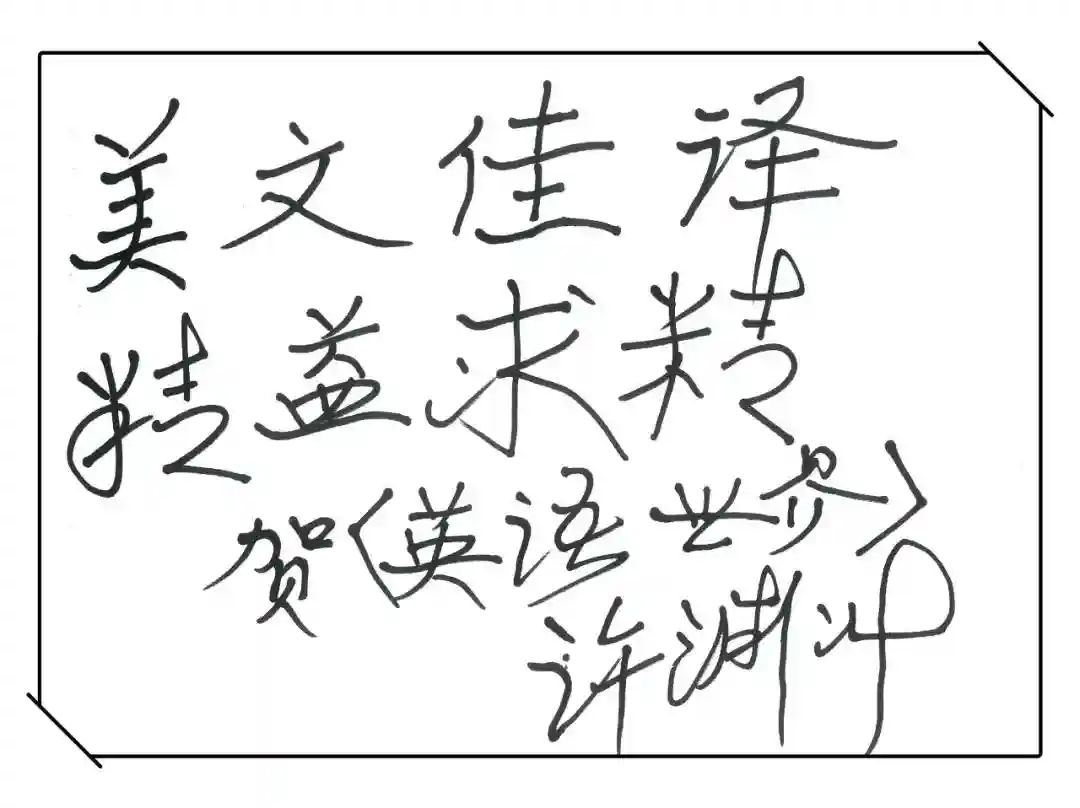 美文佳译
精益求精
贺〈英语世界〉
许渊冲